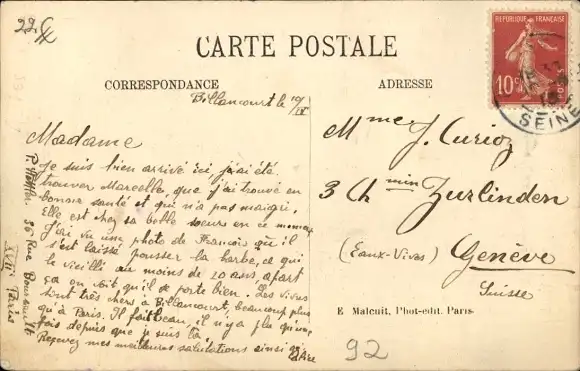 22
CARTE POSTALE
CORRESPONDANCE
ADRESSE
RÉPUBLIQUE FRANÇAISE
10c
POSTES
SEINE
Billancourt le 10/IV
Madame
Je suis bien arrivé ici, j'ai été
trouver Marcelle, que j'ai trouvé en
bonne santé et qui n'a pas maigri,
Elle est chez sa belle soeurs en ce moment
J'ai vu une photo de Francois qu'il
s'est laissé pousser la barbe, ce qui
le vieilli au moins de 20 ans, apart
ça on voit qu'il de porte bien. Les vivres
sont très chers à Billancourt, beaucoup plus
qu'à Paris. Il fait beau, il n'y a plu qu'une
fois depuis que je suis là,
Recevez mes meilleures salutations ainsi qu
P. 36 Rue Boursault
XVII Paris
Mme J. Curioz
3 Chmin Zurlinden
(Eaux-Vives) Genève
Suisse
E Malcuit, Phot-édit. Paris
92